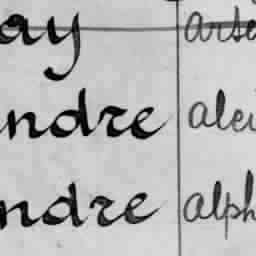 ay arse
ndre alei
ndre alph